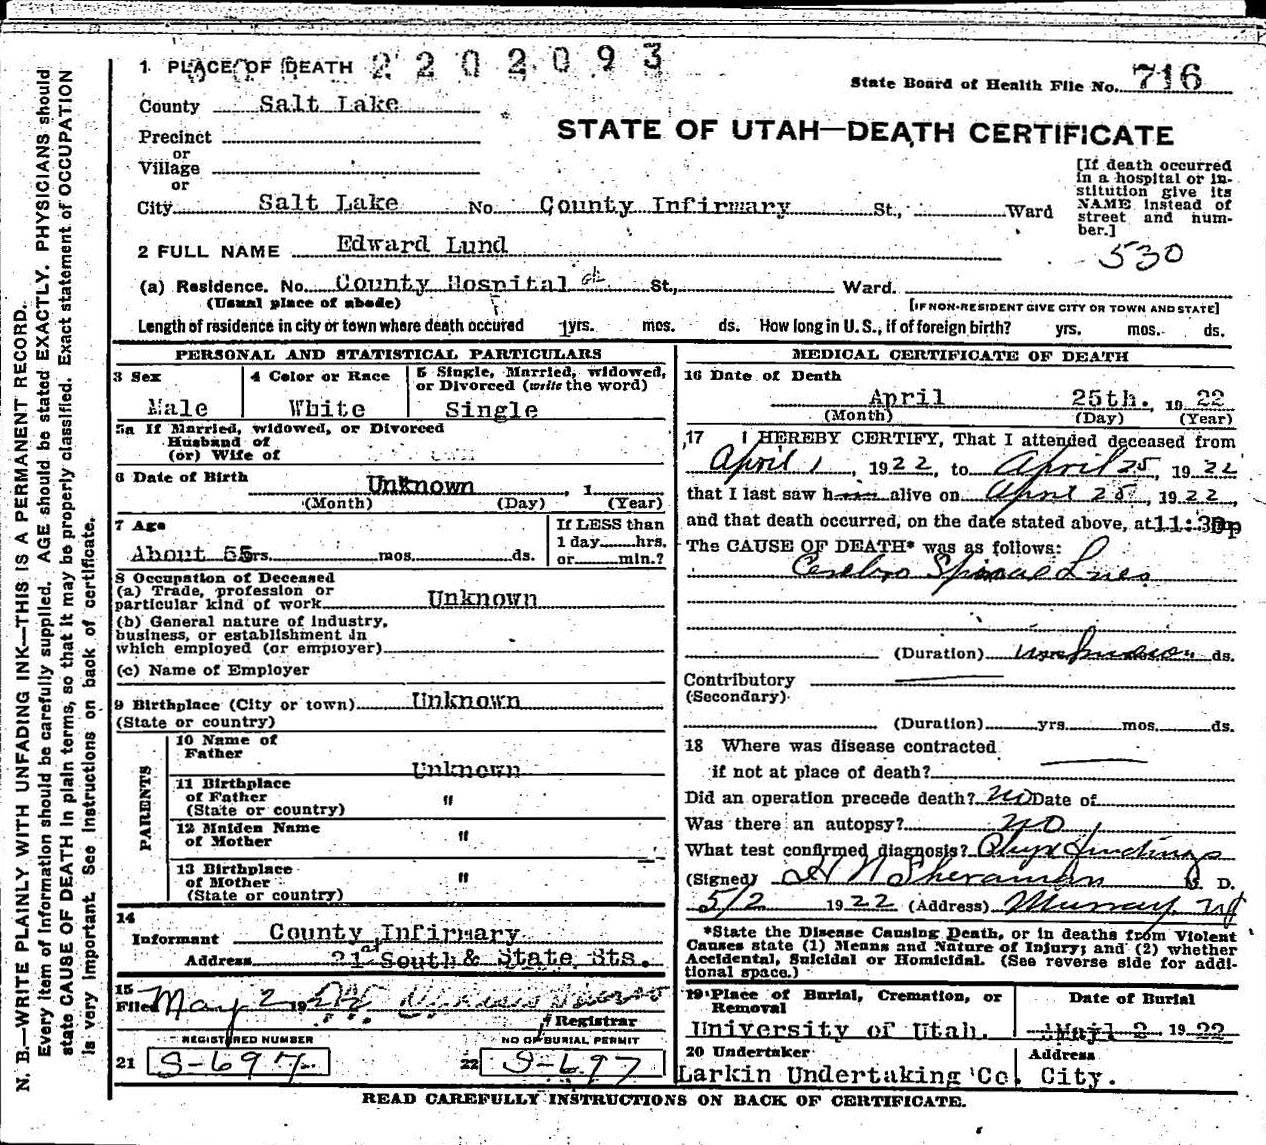 1 PLACE OF DEATH 2202093
State Board of Health File No. 716
County Salt Lake
STATE OF UTAH—DEATH CERTIFICATE
Precinct
or
Village
or
City Salt Lake No. County Infirmary St., Ward
[If death occurred
in a hospital or in-
stitution give its
NAME instead of
street and num-
ber.]
530
2 FULL NAME Edward Lund
(a) Residence. No. County Hospital St., Ward.
(Usual place of abode)
[IF NON-RESIDENT GIVE CITY OR TOWN AND STATE]
Length of residence in city or town where death occured yrs. mos. ds. How long in U. S., if of foreign birth? yrs. mos. ds.
PERSONAL AND STATISTICAL PARTICULARS
3 Sex
Male
4 Color or Race
White
5 Single, Married, widowed,
or Divorced (write the word)
Single
5a If Married, widowed, or Divorced
Husband of
(or) Wife of
6 Date of Birth
Unknown , 1
(Month) (Day) (Year)
7 Age
About 55 yrs. mos. ds.
If LESS than
1 day hrs.
or min.?
8 Occupation of Deceased
(a) Trade, profession or
particular kind of work Unknown
(b) General nature of industry,
business, or establishment in
which employed (or employer)
(c) Name of Employer
9 Birthplace (City or town) Unknown
(State or country)
PARENTS
10 Name of
Father
Unknown
11 Birthplace
of Father "
(State or country)
12 Maiden Name
of Mother "
13 Birthplace
of Mother "
(State or country)
14
Informant County Infirmary
at
Address 21 South & State Sts.
15
Filed May 2 19
Registrar
REGISTERED NUMBER
21 S-697
NO OF BURIAL PERMIT
22 S-697
MEDICAL CERTIFICATE OF DEATH
16 Date of Death
April 25th. 19 22
(Month) (Day) (Year)
17 I HEREBY CERTIFY, That I attended deceased from
April 1, 1922, to April 25, 1922
that I last saw h alive on April 25, 1922,
and that death occurred, on the date stated above, at 11:30p
The CAUSE OF DEATH* was as follows:
Cerebro Spinal Lues
(Duration) unknown ds.
Contributory
(Secondary)
(Duration) yrs. mos. ds.
18 Where was disease contracted
if not at place of death?
Did an operation precede death? No Date of
Was there an autopsy? NO
What test confirmed diagnosis? Phys findings
(Signed) M. D.
5/2 1922 (Address) Murray, Ut
*State the Disease Causing Death, or in deaths from Violent
Causes state (1) Means and Nature of Injury; and (2) whether
Accidental, Suicidal or Homicidal. (See reverse side for addi-
tional space.)
19 Place of Burial, Cremation, or
Removal
University of Utah.
Date of Burial
2 1922
20 Undertaker
Larkin Undertaking Co.
Address
City.
READ CAREFULLY INSTRUCTIONS ON BACK OF CERTIFICATE.
N. B.—WRITE PLAINLY WITH UNFADING INK—THIS IS A PERMANENT RECORD.
Every item of information should be carefully supplied. AGE should be stated EXACTLY. PHYSICIANS should
state CAUSE OF DEATH in plain terms, so that it may be properly classified. Exact statement of OCCUPATION
is very important. See instructions on back of certificate.